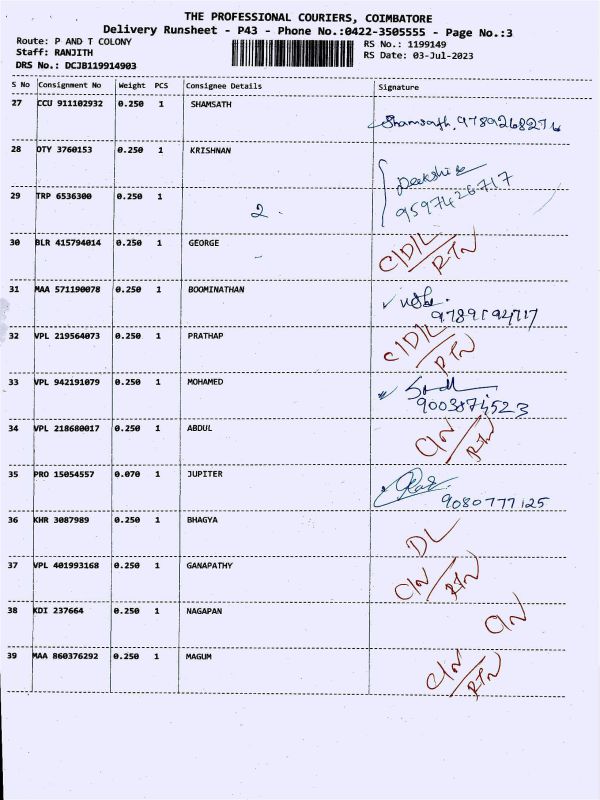 THE PROFESSIONAL COURIERS, COIMBATORE
Delivery Runsheet - P43 - Phone No.:0422-3505555 - Page No.:3
Route: P AND T COLONY RS No.: 1199149
Staff: RANJITH RS Date: 03-Jul-2023
DRS No.: DCJB119914903
S No Consignment No Weight PCS Consignee Details Signature
27 CCU 911102932 0.250 1 SHAMSATH
Shamsath, 9789268276
28 OTY 3760153 0.250 1 KRISHNAN
Deekshi
29 TRP 6536300 0.250 1 9597426717
2.
30 BLR 415794014 0.250 1 GEORGE C/D/L
RTN
31 MAA 571190078 0.250 1 BOOMINATHAN
32 VPL 219564073 0.250 1 PRATHAP C/D/L
RTN
33 VPL 942191079 0.250 1 MOHAMED
9003874523
34 VPL 218680017 0.250 1 ABDUL C/N
RTN
35 PRO 15054557 0.070 1 JUPITER
9080777125
36 KHR 3087989 0.250 1 BHAGYA
DL
37 VPL 401993168 0.250 1 GANAPATHY C/N
RTN
38 KDI 237664 0.250 1 NAGAPAN C/N
39 MAA 860376292 0.250 1 MAGUM C/N
RTN